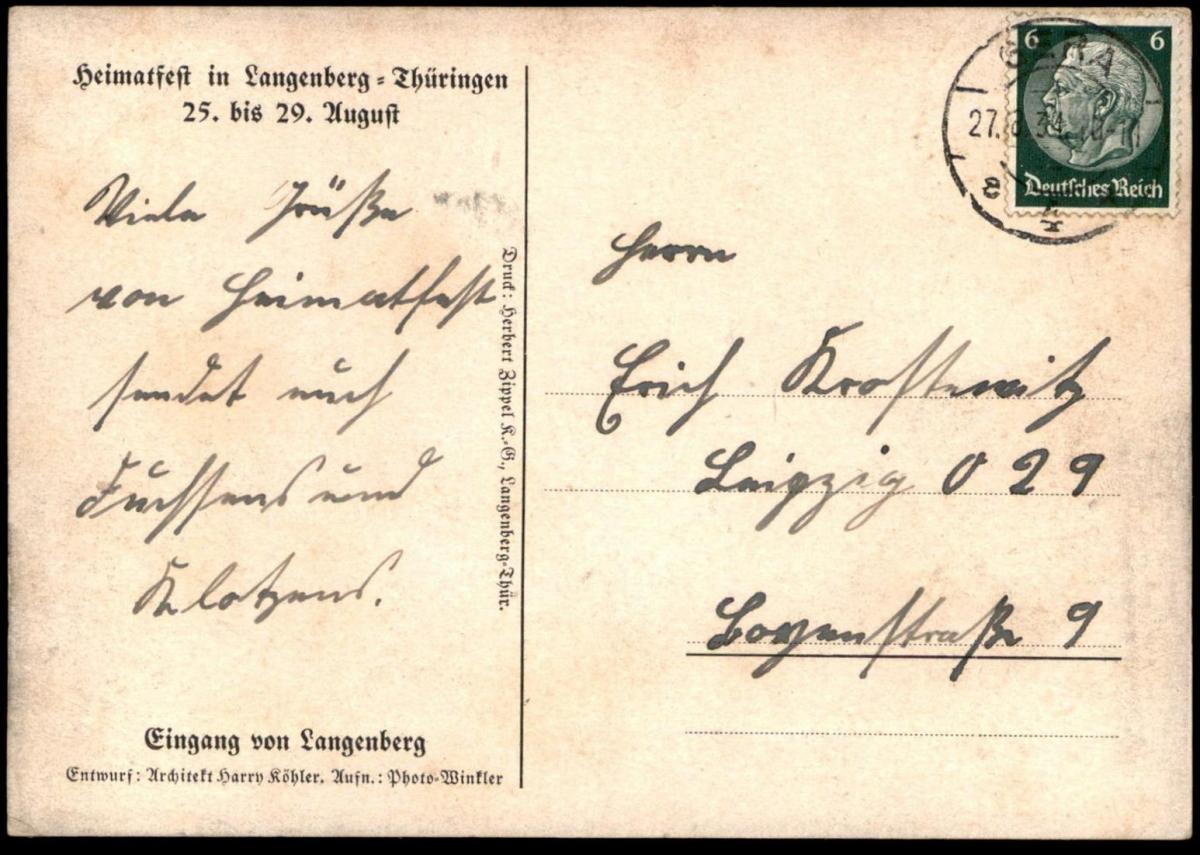 Heimatfest in Langenberg-Thüringen
25. bis 29. August
Viele Grüße
von Heimatfest
sendet euch
Fuchsens und
Klotzens.
Eingang von Langenberg
Entwurf: Architekt Harry Köhler. Aufn.: Photo-Winkler
Druck: Herbert Zippel K.-G., Langenberg-Thür.
GERA
27.8.34.10-11
6 6
Deutsches Reich
Herrn
Erich Krostewitz
Leipzig O 29
Boyenstraße 9